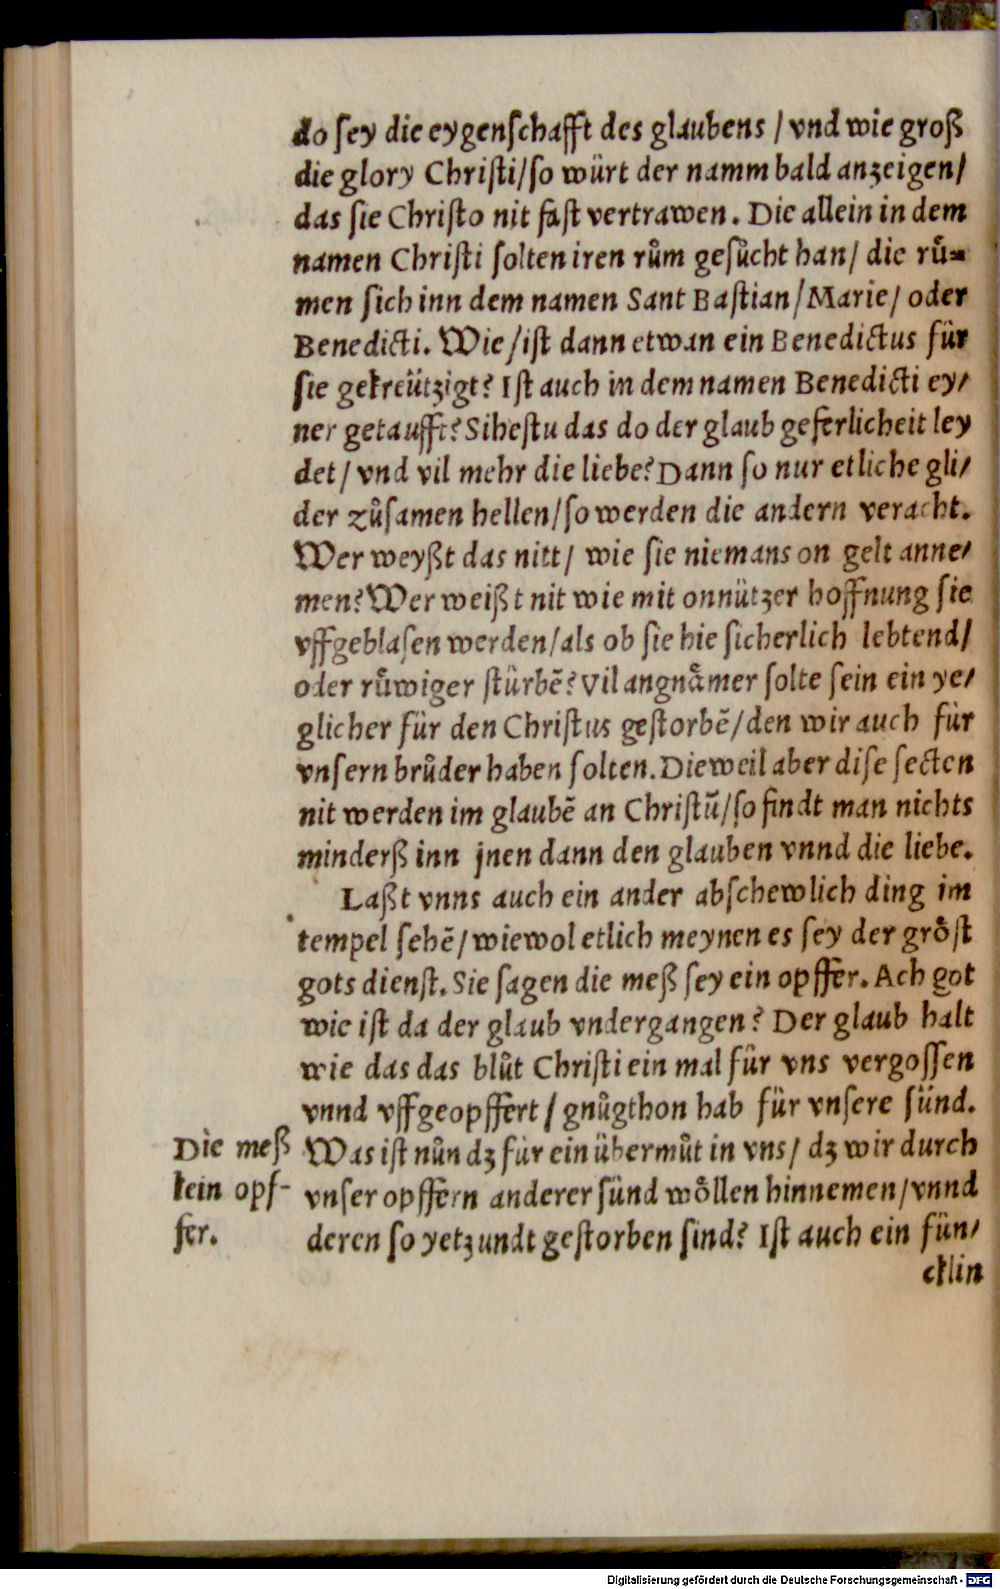 do ſey die eygenſchafft des glaubens / vnd wie groß
die glory Chriſti/ſo würt der namm bald anzeigen/
das ſie Chriſto nit faſt vertrawen. Die allein in dem
namen Chriſti ſolten iren rům geſůcht han/ die rů⸗
men ſich inn dem namen Sant Baſtian/Marie/ oder
Benedicti. Wie/iſt dann etwan ein Benedictus für
ſie gekreützigt? Iſt auch in dem namen Benedicti ey⸗
ner getaufft? Siheſtu das do der glaub geferlicheit ley
det/ vnd vil mehr die liebe? Dann ſo nur etliche gli⸗
der zůſamen hellen/ſo werden die andern veracht.
Wer weyßt das nitt/ wie ſie niemans on gelt anne⸗
men? Wer weißt nit wie mit onnützer hoffnung ſie
vffgeblaſen werden/als ob ſie hie ſicherlich lebtend/
oder růwiger ſtürbẽ? Vil angnåmer ſolte ſein ein ye⸗
glicher für den Chriſtus geſtorbẽ/den wir auch für
vnſern brůder haben ſolten. Dieweil aber diſe ſecten
nit werden im glaubẽ an Chriſtũ/ſo findt man nichts
minderß inn jnen dann den glauben vnnd die liebe.
Laßt vnns auch ein ander abſchewlich ding im
tempel ſehẽ/wiewol etlich meynen es ſey der groͤſt
gots dienſt. Sie ſagen die meß ſey ein opffer. Ach got
wie iſt da der glaub vndergangen? Der glaub halt
wie das das blůt Chriſti ein mal für vns vergoſſen
vnnd vffgeopffert/ gnůgthon hab für vnſere ſünd.
Die meß
kein opf-
fer.
Was iſt nůn dz für ein übermůt in vns/ dz wir durch
vnſer opffern anderer ſünd woͤllen hinnemen/vnnd
deren ſo yetzundt geſtorben ſind? Iſt auch ein fün⸗
cklin
Digitalisierung gefördert durch die Deutsche Forschungsgemeinschaft - DFG